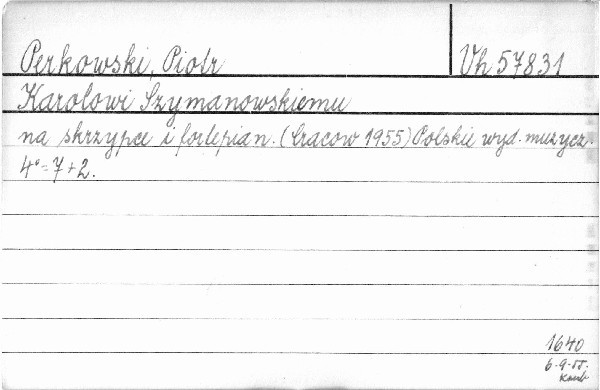 Perkowski, Piotr Vh 57831
Karolowi Szymanowskiemu
na skrzypce i fortepian. (Cracow 1955) Polskie wyd. muzycz.
4° = 7 + 2.
1640
6-9-55.